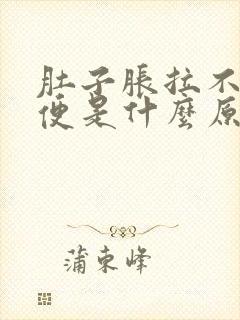 肚子脹拉不
便是什麼原
蒲束峰